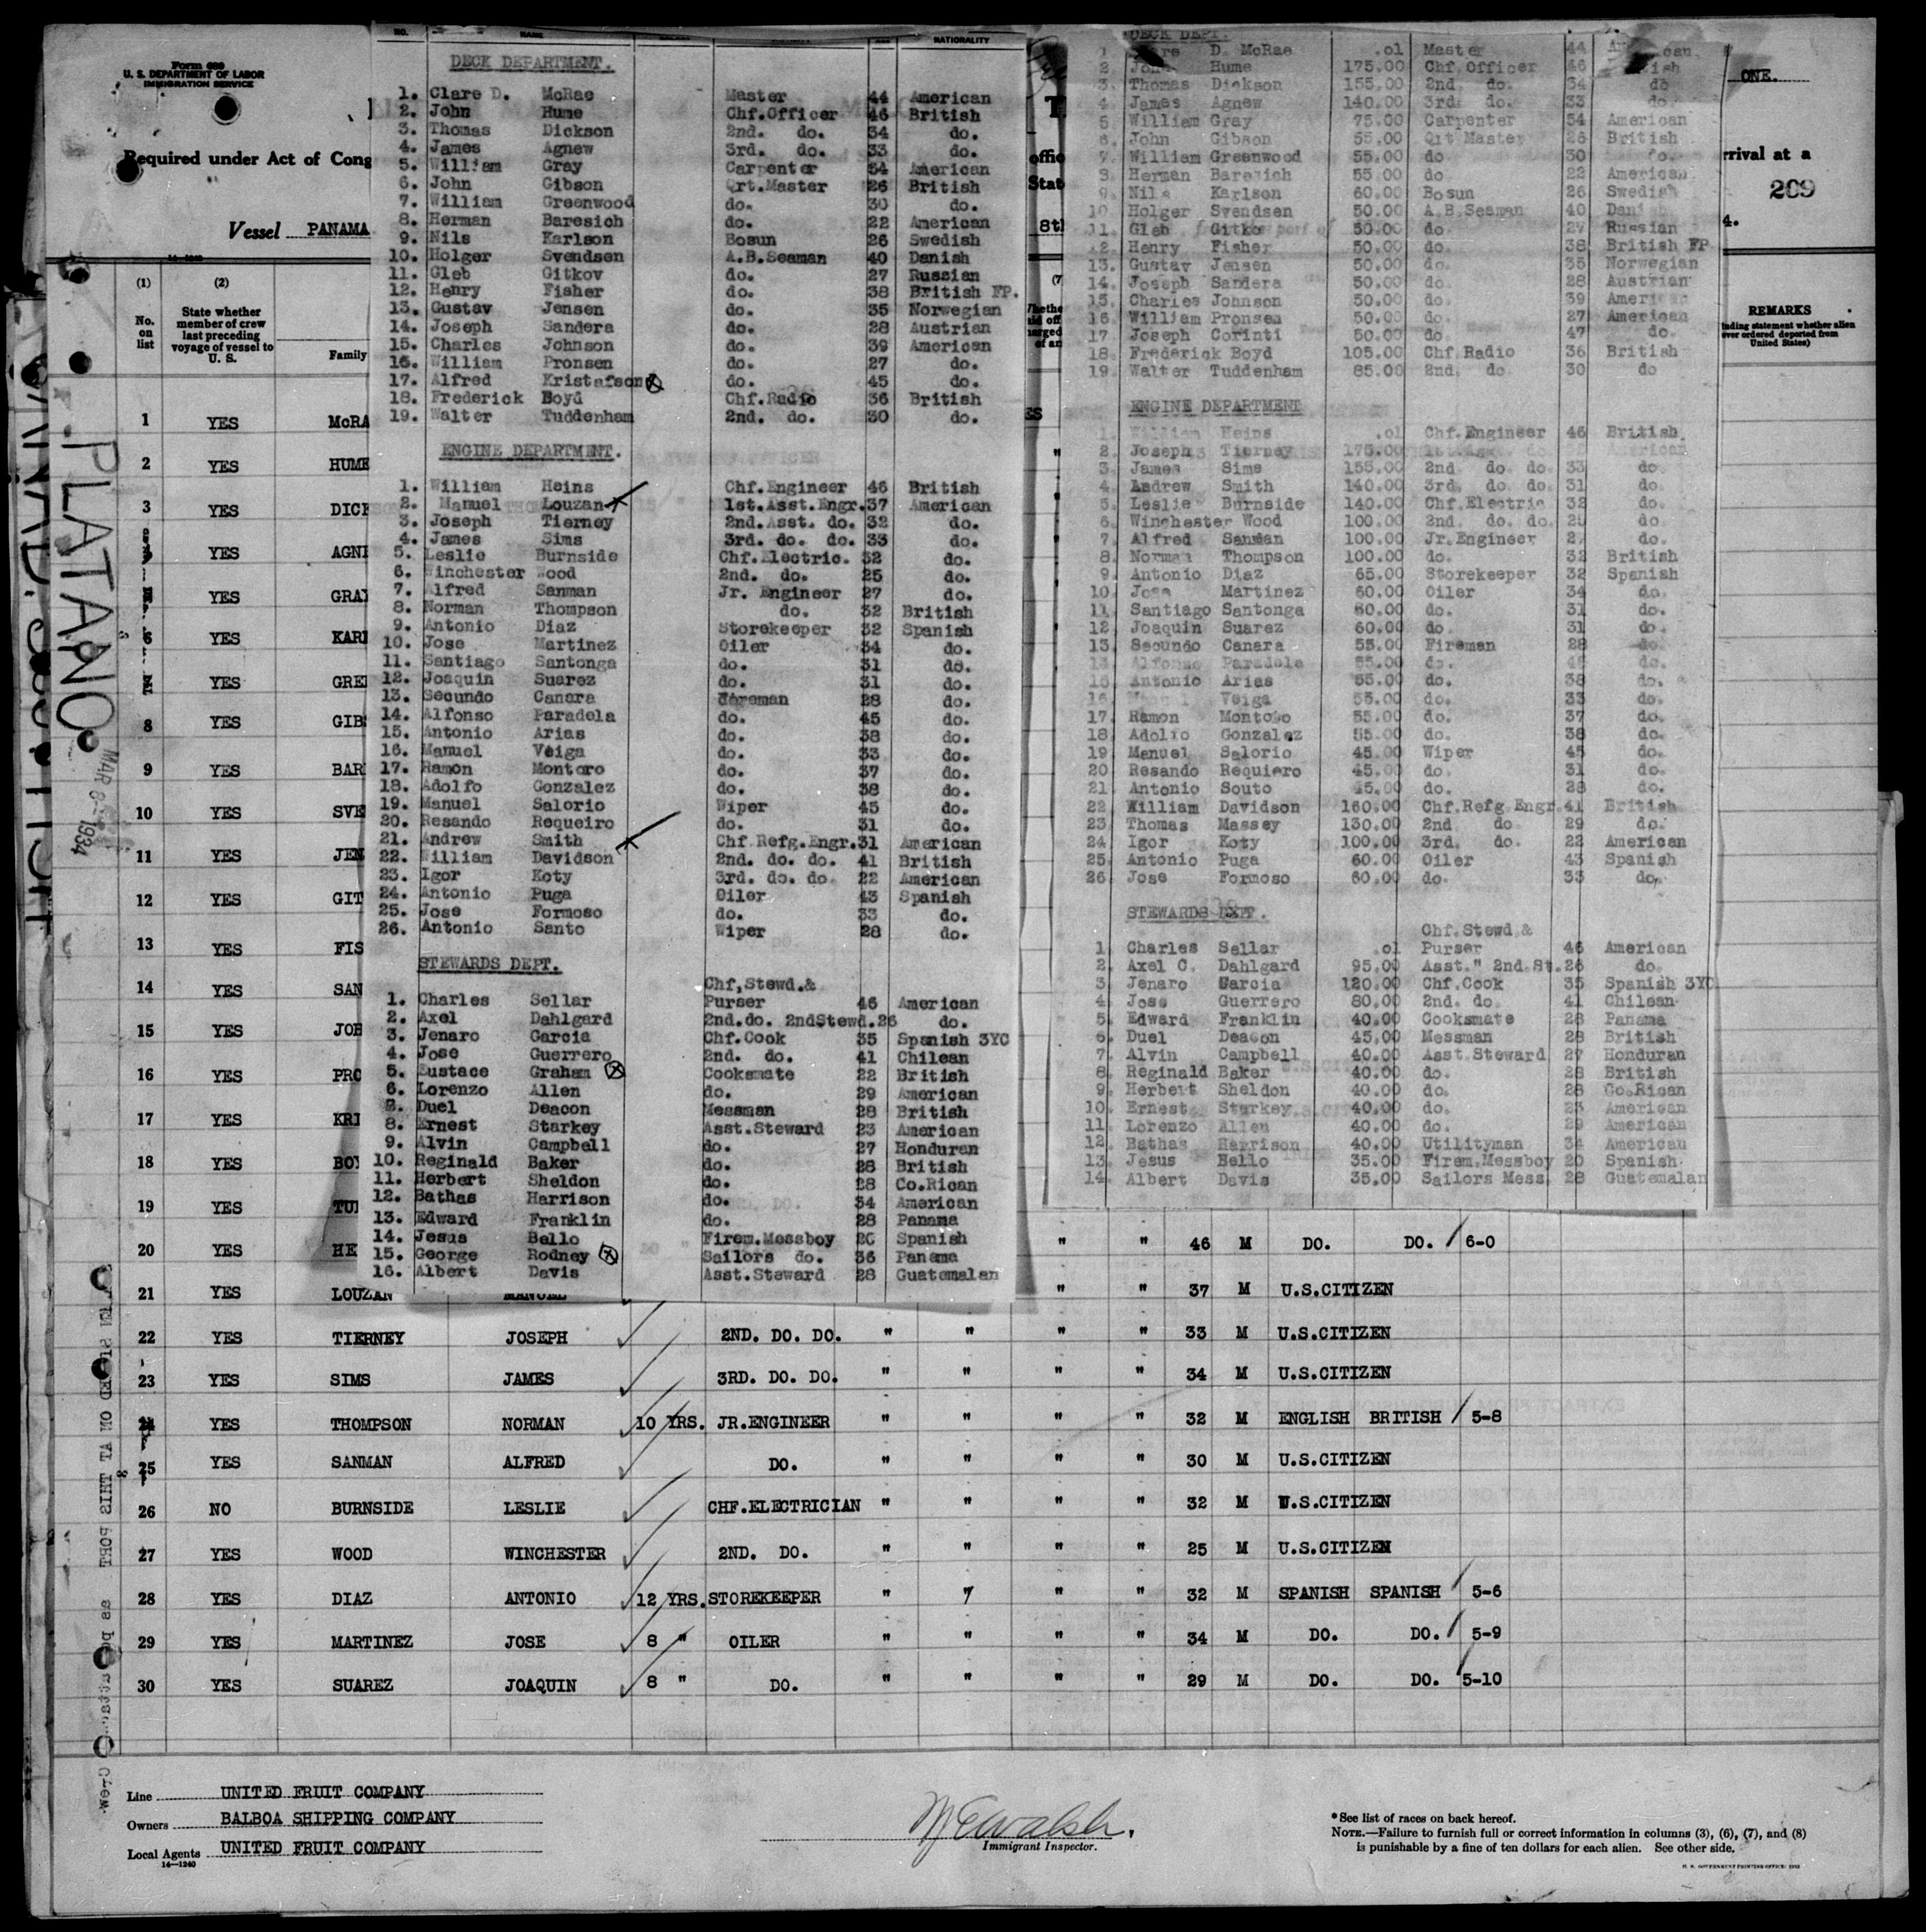 Form 689
U. S. DEPARTMENT OF LABOR
IMMIGRATION SERVICE
Required under Act of Cong
Vessel PANAMA
ONE.
rrival at a
209
4.
offic
Stat
8th
(1) (2)
No. on list
State whether member of crew last preceding voyage of vessel to U. S.
Family
REMARKS
nding statement whether alien
ever ordered deported from
United States)
PLATANO
MAR 8-1934
NO. NAME NATIONALITY
DECK DEPARTMENT.
1. Clare D. McRae Master 44 American
2. John Hume Chf.Officer 46 British
3. Thomas Dickson 2nd. do. 34 do.
4. James Agnew 3rd. do. 33 do.
5. William Gray Carpenter 54 American
6. John Gibson Qrt.Master 26 British
7. William Greenwood do. 30 do.
8. Herman Baresich do. 22 American
9. Nils Karlson Bosun 26 Swedish
10. Holger Svendsen A.B.Seaman 40 Danish
11. Gleb Gitkov do. 27 Russian
12. Henry Fisher do. 38 British FP.
13. Gustav Jensen do. 35 Norwegian
14. Joseph Sandera do. 28 Austrian
15. Charles Johnson do. 39 American
16. William Pronsen do. 27 do.
17. Alfred Kristafson do. 45 do.
18. Frederick Boyd Chf.Radio 36 British
19. Walter Tuddenham 2nd. do. 30 do.
ENGINE DEPARTMENT.
1. William Heins Chf.Engineer 46 British
2. Manuel Louzan 1st.Asst.Engr. 37 American
3. Joseph Tierney 2nd.Asst. do. 32 do.
4. James Sims 3rd. do. do. 33 do.
5. Leslie Burnside Chf.Electric. 32 do.
6. Winchester Wood 2nd. do. 25 do.
7. Alfred Sanman Jr. Engineer 27 do.
8. Norman Thompson do. 32 British
9. Antonio Diaz Storekeeper 32 Spanish
10. Jose Martinez Oiler 34 do.
11. Santiago Santonga do. 31 do.
12. Joaquin Suarez do. 31 do.
13. Secundo Canara Fireman 28 do.
14. Alfonso Paradela do. 45 do.
15. Antonio Arias do. 38 do.
16. Manuel Veiga do. 33 do.
17. Ramon Montoro do. 37 do.
18. Adolfo Gonzalez do. 38 do.
19. Manuel Salorio Wiper 45 do.
20. Resando Requeiro do. 31 do.
21. Andrew Smith Chf Refg.Engr. 31 American
22. William Davidson 2nd. do. do. 41 British
23. Igor Koty 3rd. do. do. 22 American
24. Antonio Puga Oiler 43 Spanish
25. Jose Formoso do. 33 do.
26. Antonio Santo Wiper 28 do.
STEWARDS DEPT.
Chf,Stewd.&
1. Charles Sellar Purser 46 American
2. Axel Dahlgard 2nd.do. 2ndStewd. 26 do.
3. Jenaro Garcia Chf.Cook 35 Spanish 3YC
4. Jose Guerrero 2nd. do. 41 Chilean
5. Eustace Graham Cooksmate 22 British
6. Lorenzo Allen do. 29 American
Duel Deacon Messman 28 British
8. Ernest Starkey Asst.Steward 23 American
9. Alvin Campbell do. 27 Honduran
10. Reginald Baker do. 28 British
11. Herbert Sheldon do. 28 Co.Rican
12. Bathas Harrison do. 34 American
13. Edward Franklin do. 28 Panama
14. Jesus Bello Firem.Messboy 20 Spanish
15. George Rodney Sailors do. 36 Panama
16. Albert Davis Asst.Steward 28 Guatemalan
DECK DEPT.
D. McRae .01 Master 44
2. John Hume 175.00 Chf.Officer 46
3. Thomas Dickson 155.00 2nd. do. 34 do
4. James Agnew 140.00 3rd. do. 33 do.
5 William Gray 75.00 Carpenter 54 American
6. John Gibson 55.00 Qrt Master 26 British
7. William Greenwood 55.00 do 30 do.
8. Herman Baresich 55.00 do 22 American
9. Nils Karlson 60.00 Bosun 26 Swedish
10. Holger Svendsen 50.00 A.B.Seaman 40 Danish
11. Gleb Gitko 50.00 do. 27 Russian
12. Henry Fisher 50.00 do. 38 British FP
13. Gustav Jensen 50.00 do. 35 Norwegian
14. Joseph Sandera 50.00 do. 28 Austrian
15. Charles Johnson 50.00 do. 39 American
16 William Pronsen 50.00 do. 27 American
17 Joseph Corinti 50.00 do. 47 do.
18. Frederick Boyd 105.00 Chf.Radio 36 British
19. Walter Tuddenham 85.00 2nd. do. 30 do
ENGINE DEPARTMENT
1. William Heins .01 Chf.Engineer 46 British
2. Joseph Tierney 175.00
3. James Sims 155.00 2nd do. do. 33 do.
4. Andrew Smith 140.00 3rd. do. do. 31 do.
5 Leslie Burnside 140.00 Chf.Electric 32 do.
6. Winchester Wood 100.00 2nd. do. do. 25 do
7. Alfred Sanman 100.00 Jr.Engineer 27 do.
8. Norman Thompson 100.00 do. 32 British
9. Antonio Diaz 65.00 Storekeeper 32 Spanish
10. Jose Martinez 60.00 Oiler 34 do.
11 Santiago Santonga 60.00 do. 31 do.
12 Joaquin Suarez 60.00 do. 31 do.
13. Secundo Canara 55.00 Fireman 28 do.
14 Alfonso Paradela 55.00 do. 45 do.
15 Antonio Arias 55.00 do. 38 do.
16 Veiga 55.00 do. 33 do.
17. Ramon Montoso 55.00 do. 37 do.
18 Adolfo Gonzalez 55.00 do. 38 do.
19 Manuel Salorio 45.00 Wiper 45 do.
20 Resando Requiero 45.00 do. 31 do.
21 Antonio Souto 45.00 do. 28 do.
22 William Davidson 160.00 Chf.Refg Engr. 41 British
23 Thomas Massey 130.00 2nd do 29 do.
24 Igor Koty 100.00 3rd. do. 22 American
25. Antonio Puga 60.00 Oiler 43 Spanish
26 Jose Formoso 60.00 do. 33 do.
STEWARDS DEPT.
Chf.Stewd &
1. Charles Sellar .01 Purser 46 American
2. Axel C. Dahlgard 95.00 Asst." 2nd.St. 26 do.
3 Jenaro Garcia 120.00 Chf.Cook 35 Spanish 3YC
4 Jose Guerrero 80.00 2nd. do. 41 Chilean
5. Edward Franklin 40.00 Cooksmate 28 Panama
6. Duel Deacon 45.00 Messman 28 British
7. Alvin Campbell 40.00 Asst Steward 27 Honduran
8. Reginald Baker 40.00 do. 28 British
9. Herbert Sheldon 40.00 do. 28 Co.Rican
10. Ernest Starkey 40.00 do. 23 American
11. Lorenzo Allen 40.00 do. 29 American
12. Bathas Harrison 40.00 Utilityman 34 American
13. Jesus Bello 35.00 Firem.Messboy 20 Spanish
14. Albert Davis 35.00 Sailors Mess. 28 Guatemalan
1 YES McRA
2 YES HUME
3 YES DICK
YES AGNE
YES GRAY
6 YES KARL
YES GREE
8 YES GIBS
9 YES BAR
10 YES SVE
11 YES JEN
12 YES GIT
13 YES FIS
14 YES SAN
15 YES JOH
16 YES PRO
17 YES KRI
18 YES BOY
19 YES TUD
20 YES HE " " 46 M DO. DO. 6-0
21 YES LOUZAN MANUEL " " 37 M U.S.CITIZEN
22 YES TIERNEY JOSEPH 2ND. DO. DO. " " " " 33 M U.S.CITIZEN
23 YES SIMS JAMES 3RD. DO. DO. " " " " 34 M U.S.CITIZEN
24 YES THOMPSON NORMAN 10 YRS. JR.ENGINEER " " " " 32 M ENGLISH BRITISH 5-8
25 YES SANMAN ALFRED DO. " " " " 30 M U.S.CITIZEN
26 NO BURNSIDE LESLIE CHF.ELECTRICIAN " " " " 32 M U.S.CITIZEN
27 YES WOOD WINCHESTER 2ND. DO. " " " " 25 M U.S.CITIZEN
28 YES DIAZ ANTONIO 12 YRS. STOREKEEPER " " " " 32 M SPANISH SPANISH 5-6
29 YES MARTINEZ JOSE 8 " OILER " " " " 34 M DO. DO. 5-9
30 YES SUAREZ JOAQUIN 8 " DO. " " " " 29 M DO. DO. 5-10
Line UNITED FRUIT COMPANY
Owners BALBOA SHIPPING COMPANY
Local Agents UNITED FRUIT COMPANY
14—1240
Immigrant Inspector.
*See list of races on back hereof.
NOTE.—Failure to furnish full or correct information in columns (3), (6), (7), and (8)
is punishable by a fine of ten dollars for each alien. See other side.
U. S. GOVERNMENT PRINTING OFFICE: 1932